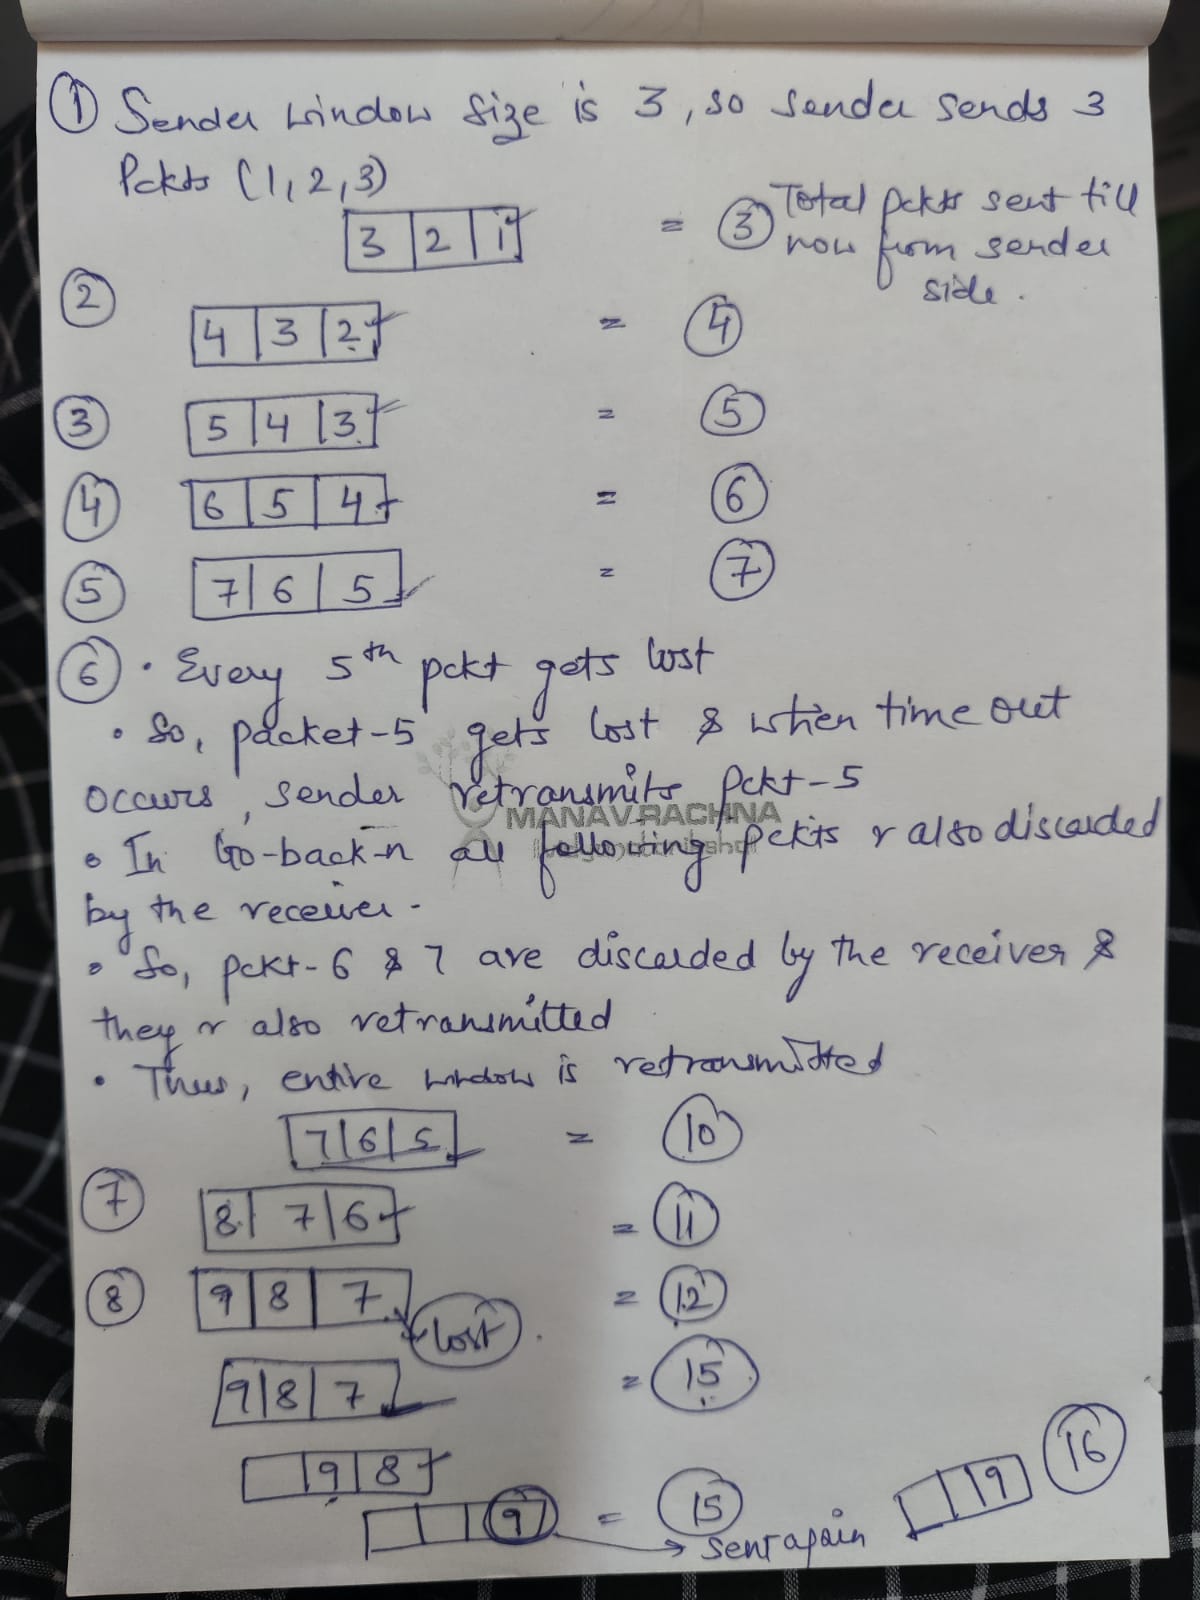 ① Sender window size is 3, so sender sends 3
Pckts (1,2,3)
3 | 2 | 1 = ③ Total pckts sent till
now from sender
side.
② 4 | 3 | 2 = ④
③ 5 | 4 | 3 = ⑤
④ 6 | 5 | 4 = ⑥
⑤ 7 | 6 | 5 = ⑦
⑥ • Every 5th pckt gets lost
• So, packet-5 gets lost & when time out
occurs, sender retransmits Pckt-5
MANAV RACHNA
• In Go-back-n all following pckts r also discarded
by the receiver.
• So, pckt-6 & 7 are discarded by the receiver &
they r also retransmitted
• Thus, entire window is retransmitted
7 | 6 | 5 = ⑩
⑦ 8 | 7 | 6 = ⑪
⑧ 9 | 8 | 7 = ⑫
lost.
9 | 8 | 7 = ⑮
9 | 8
9 = ⑮
sent again
9 ⑯